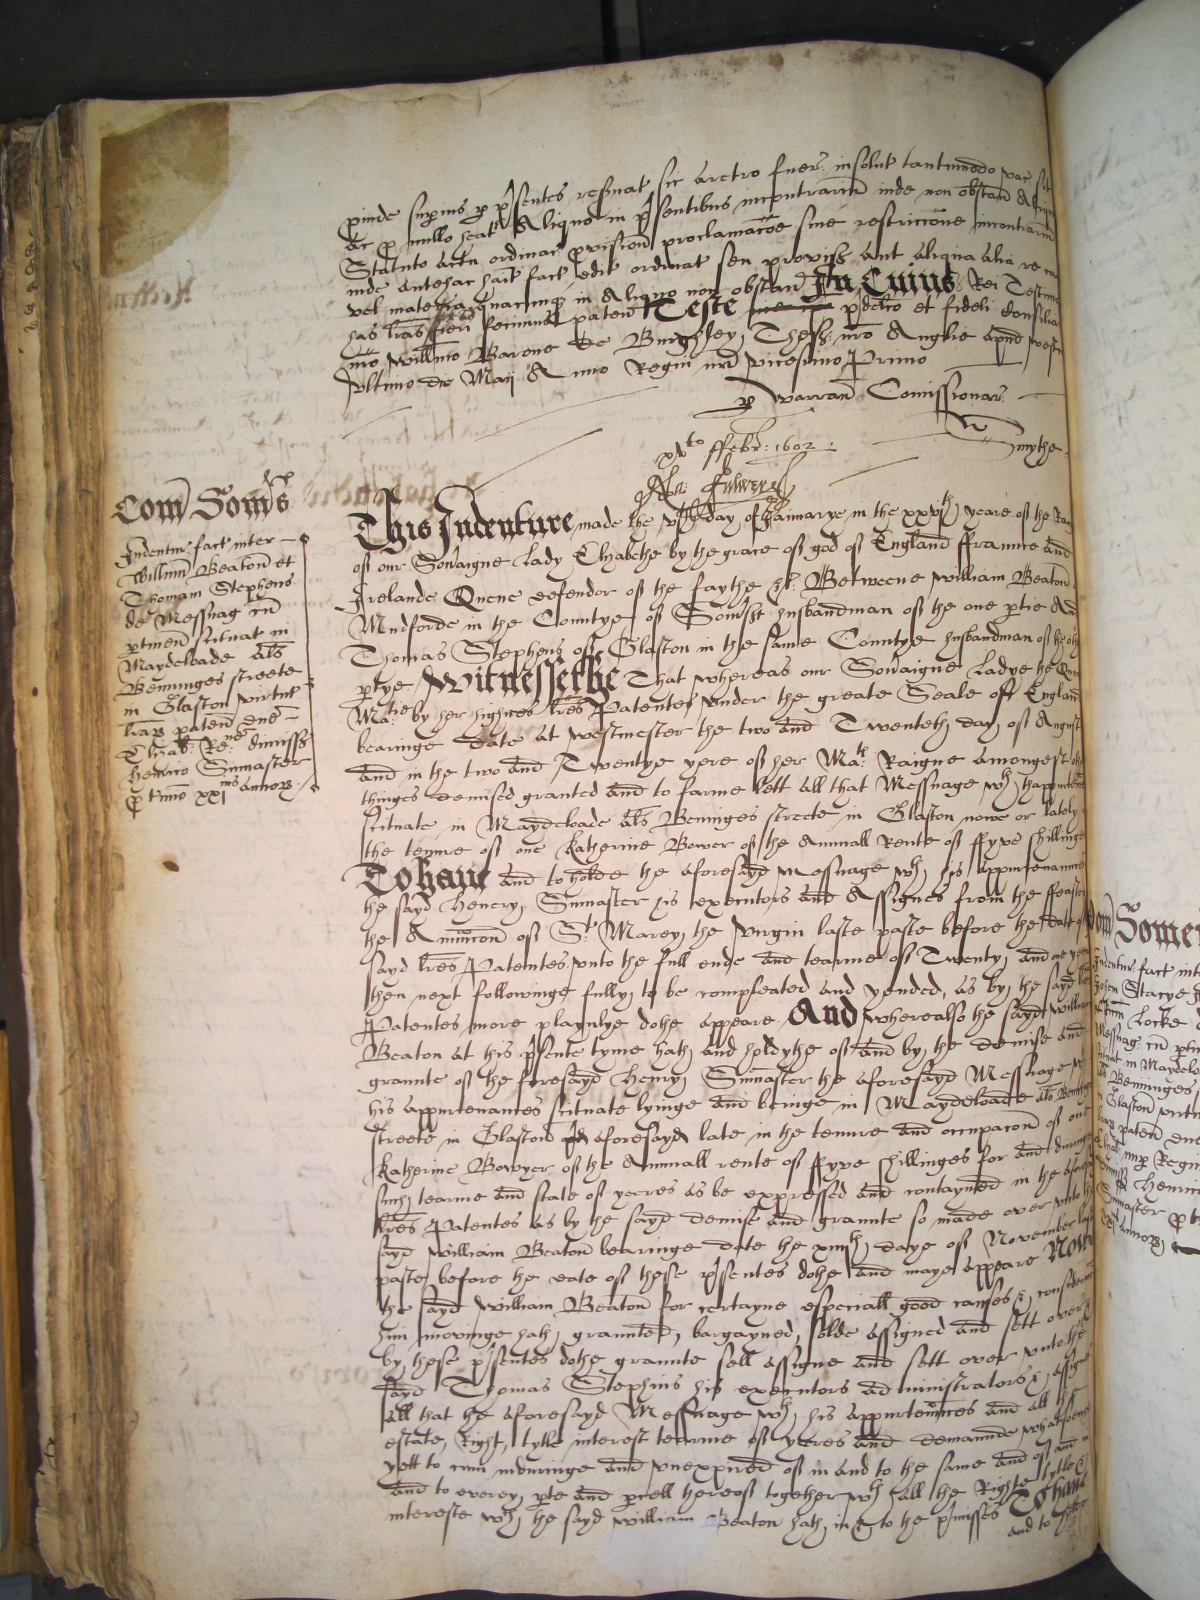 p̱inde sup̱ius p̱ p̱sentes reservat sic aretro fuer insolut tantumodo vac
ac p̱ nullo heat Aliquo in p̱sentibus incontrariū inde non obstan Aliquo
Statuto actu ordinac p̱vision proclamacōe sive restriccōne incontrariū
inde antehac hait fact edit ordinat seu proviss aut aliqua alia re
vel materia quacunq in Aliquo non obstan In Cuius Rei Testimo
has l̄ras fieri fecimus paten Teste p̱dilco et fideli Consilia
n̄ro Will̄mo Barone de Burghley Thess n̄ro Anglie apud Westm
Ultimo die Maij Anno Regni n̄ri vicesimo Primo
p̱ warran̄ Comissionar
Smythe
xvto ffebr: 1602
Com̄ Som̄s
Indentur fact inter
Willm̄ Beaton et
Thomam Stephens
de Messuag cū
p̱tinen̄ scituat in
Maydeloade al̄s
Benninges streete
in Glaston virtut
l̄rar paten̄ dn̄e
Elizab: Re:ne dimiss
Henrico Sumaster
p̱ t'mīo xxj annor
This Indenture made the day of Januarye in the xxvith yeare of the
of our Sov'aigne Lady Elyzabethe by the grace of god of England ffraunce and
Irelande Quene defendor of the faythe &c. Betweene William Beaton
Mudforde in the Countye of Som'st husbandman of the one p̱tie And
Thomas Stephens of Glaston in the same Countye husbandman of the
p̱tye Witnessethe That whereas our Sov'aigne Ladye the Quen
Ma:tie by her highnes l̄res Patentes under the greate Seale off England
bearinge date at westmester the two and Twenteth day of August
and in the two and Twentye yere of her Ma:ts Raigne amongest
thinges demised granted and to farme lett all that Messuage wth thappurten
scituate in Maydeloade al̄s Benninges streete in Glaston nowe or lately
the tenure of one Katherine Bower of the Annuall Rente of ffyve shillinges
To haue and to holde the aforesayd Messuage wth his appurtenaunces
the sayd Henery Sumaster his executors and Assignes from the ffeaste
the Anuncon of St. Marey the Virgin laste paste before the date
sayd l̄res Patentes unto the full ende and tearme of Twenty and one
then next followinge fully to be compleated and yended, as by the sayd
Patentes more playnlye dothe appeare And whereas also the sayd William
Beaton at this p̱sente tyme hath and holdythe of and by the demise and
graunte of the foresayd Henry Sumaster the aforesayd Messuage
his appurtenances scituate lyinge and beinge in Maydeloade al̄s
streete in Glaston aforesayd late in the tenure and occupacon of one
Katherine Bowyer of the Annuall rente of ffyve shillinges for and duringe
suche tearme and state of yeeres as be expressed and contayned in the
l̄res Patentes as by the sayd demise and graunte so made over unto the
sayd William Beaton bearinge date the daye of November last
paste before the date of these p̱sentes dothe and maye appeare Nowe
the sayd William Beaton for certayne especiall good causes &
him movinge hath graunted, bargayned, solde assigned and sett over
by these p̱sentes dothe graunte sell assigne and sett over unto the
sayd Thomas Stephins his executors administrators &
all that the aforesayd Messuage wth his appurtennces and all
estate, Right, tytle interest tearme of yeeres and demaunde whatsoever
yett to cum induringe and unexpired of in and to the same and
and to everey p̱te and p̱cell thereof together wth all the Righte tytle
intereste wch the sayd William Beaton hath in & to the p̱misses To haue
and to
Com̄ Somer
Indentur fact int
Stacye
Locke
Messuag cū
in Maydelo
Benninges
Glaston virtu
paten dn̄e
Regin
Henrico
Sumaster p̱
annor